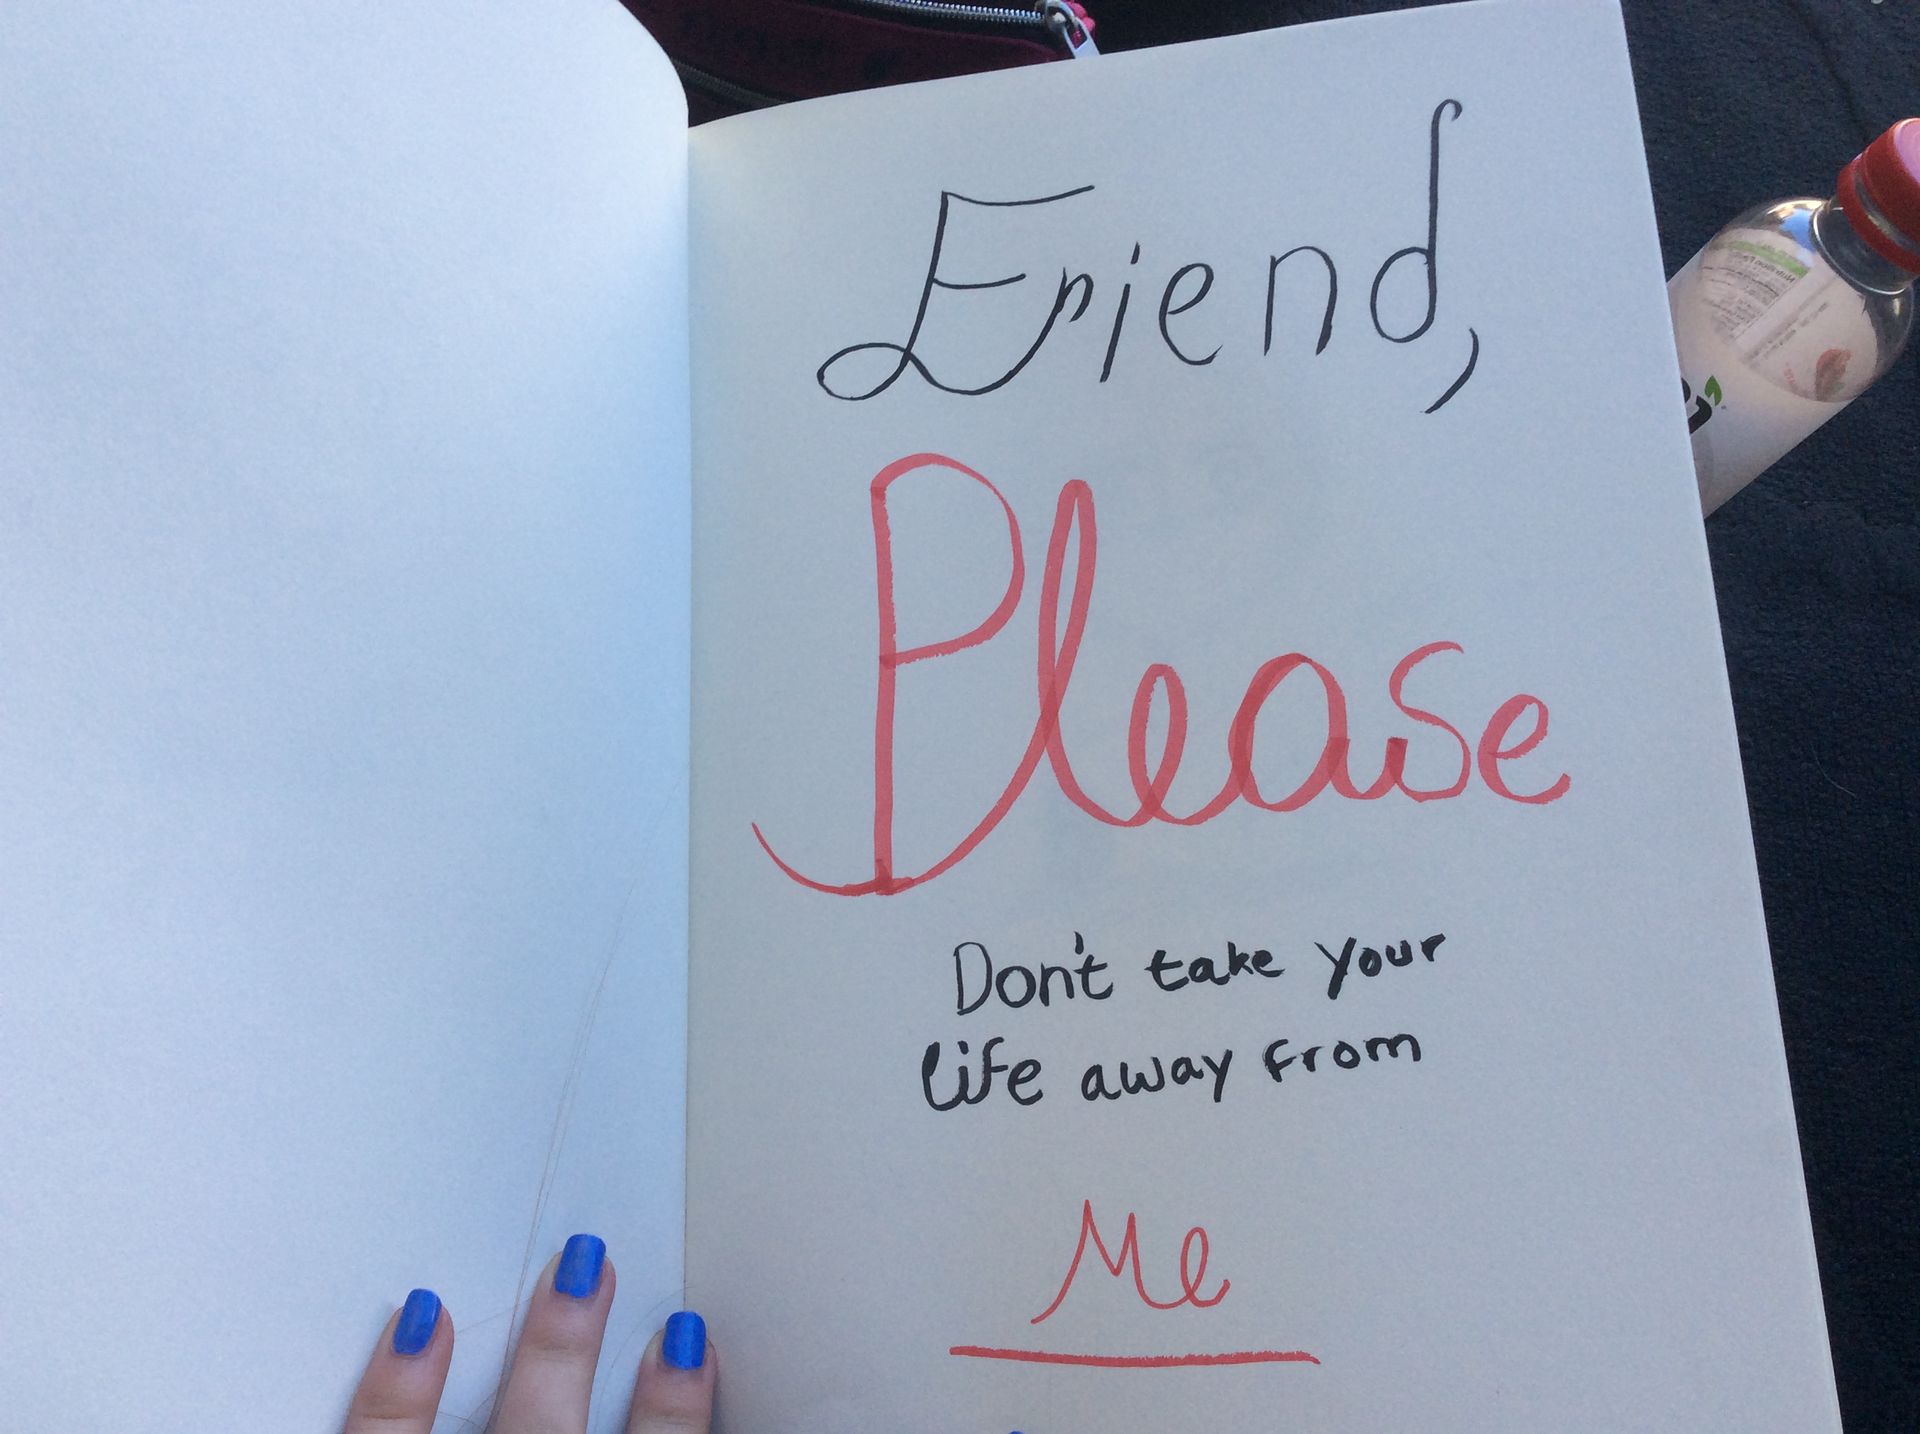 Friend,
Please
Don't take your
life away from
Me